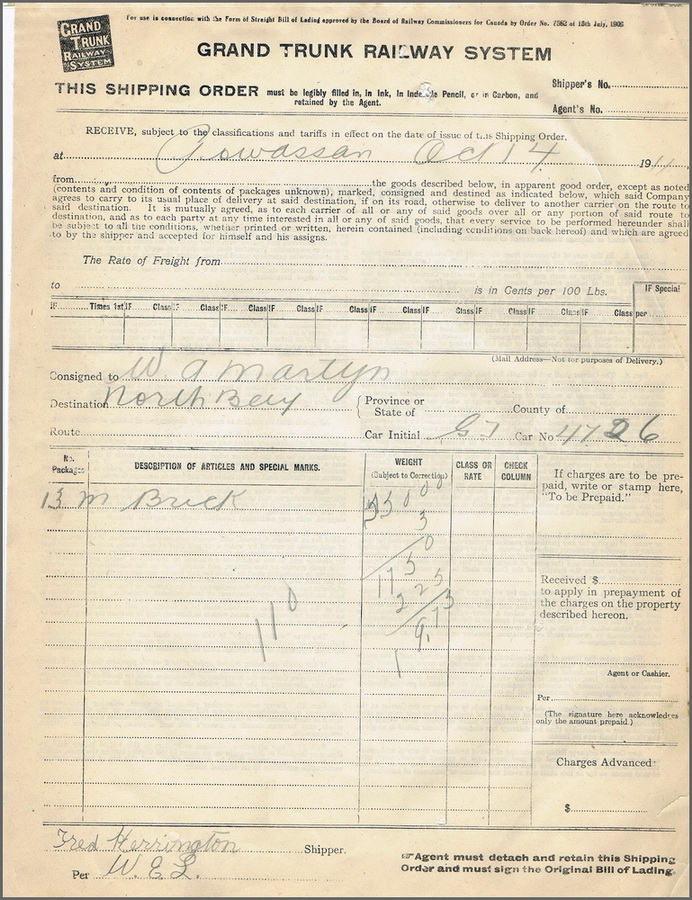 For use in connection with the Form of Straight Bill of Lading approved by the Board of Railway Commissioners for Canada by Order No. 7562 of 15th July, 1909
GRAND TRUNK RAILWAY SYSTEM
GRAND TRUNK RAILWAY SYSTEM
THIS SHIPPING ORDER must be legibly filled in, in Ink, in Indelible Pencil, or in Carbon, and retained by the Agent.
Shipper's No.
Agent's No.
RECEIVE, subject to the classifications and tariffs in effect on the date of issue of this Shipping Order,
at Powassan Oct 14 1911
from the goods described below, in apparent good order, except as noted
(contents and condition of contents of packages unknown), marked, consigned and destined as indicated below, which said Company
agrees to carry to its usual place of delivery at said destination, if on its road, otherwise to deliver to another carrier on the route to
said destination. It is mutually agreed, as to each carrier of all or any of said goods over all or any portion of said route to
destination, and as to each party at any time interested in all or any of said goods, that every service to be performed hereunder shall
be subject to all the conditions, whether printed or written, herein contained (including conditions on back hereof) and which are agreed
to by the shipper and accepted for himself and his assigns.
The Rate of Freight from
to is in Cents per 100 Lbs.
IF Special
IF Times 1st IF Class IF Class IF Class IF Class IF Class IF Class IF Class IF Class IF Class Class per
(Mail Address—Not for purposes of Delivery.)
Consigned to W A Martyn
Destination North Bay Province or State of County of
Route Car Initial GT Car No 4726
No. Packages DESCRIPTION OF ARTICLES AND SPECIAL MARKS. WEIGHT (Subject to Correction) CLASS OR RATE CHECK COLUMN
If charges are to be prepaid, write or stamp here, "To be Prepaid."
13 M Brick 55000
3
0
115
225
9.73
1
110
Received $
to apply in prepayment of
the charges on the property
described hereon.
Agent or Cashier.
Per
(The signature here acknowledges
only the amount prepaid.)
Charges Advanced:
$
Fred Herrington Shipper.
Per W. E. L.
Agent must detach and retain this Shipping
Order and must sign the Original Bill of Lading.